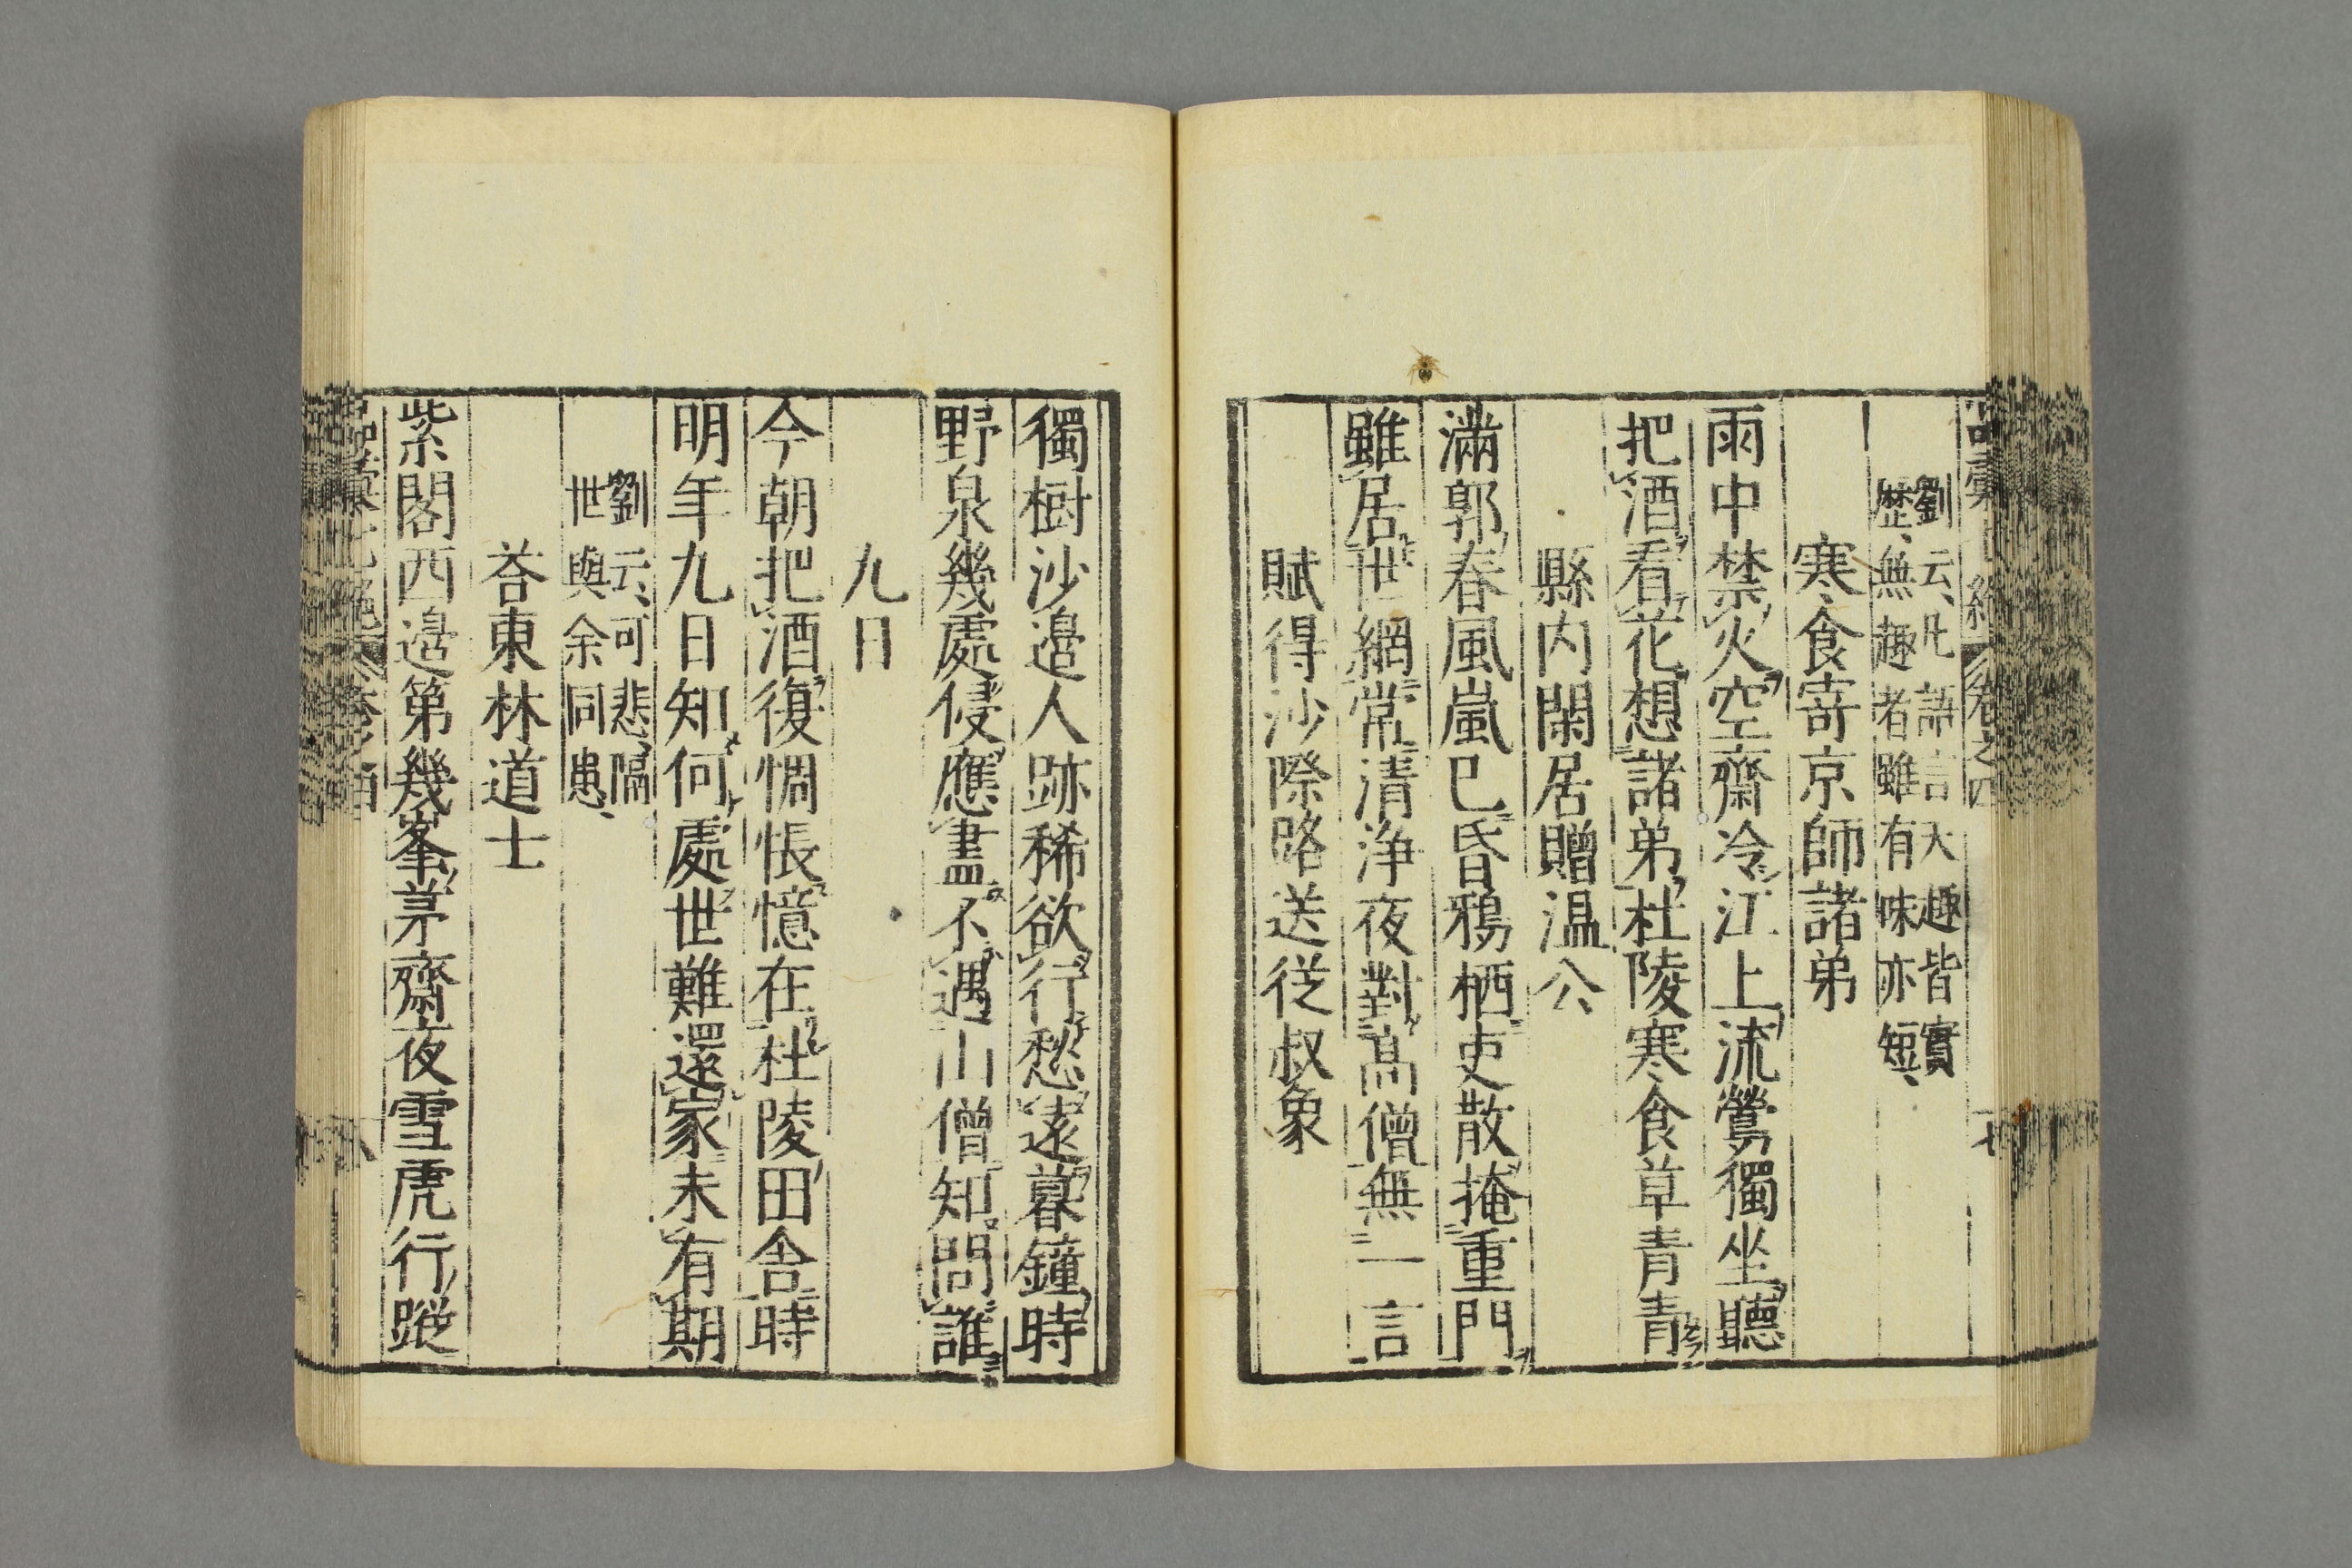 劉云凡語言大趣皆實
歴無趣者雖有味亦短
寒食寄京師諸弟
雨中禁火空齋冷江上流鶯獨坐聽
把酒看花想諸弟杜陵寒食草青青
縣内閑居贈温公
滿郭春風嵐已昏鴉栖吏散掩重門
雖居世網常清淨夜對高僧無一言
賦得沙際路送從叔象
獨樹沙邉人跡稀欲行愁遠暮鐘時
野泉幾處侵應盡不遇山僧知問誰
九日
今朝把酒復惆悵憶在杜陵田舎時
明年九日知何處世難還家未有期
劉云可悲隔
世與余同患
荅東林道士
紫閣西邉第幾峯茅齋夜雪虎行蹤